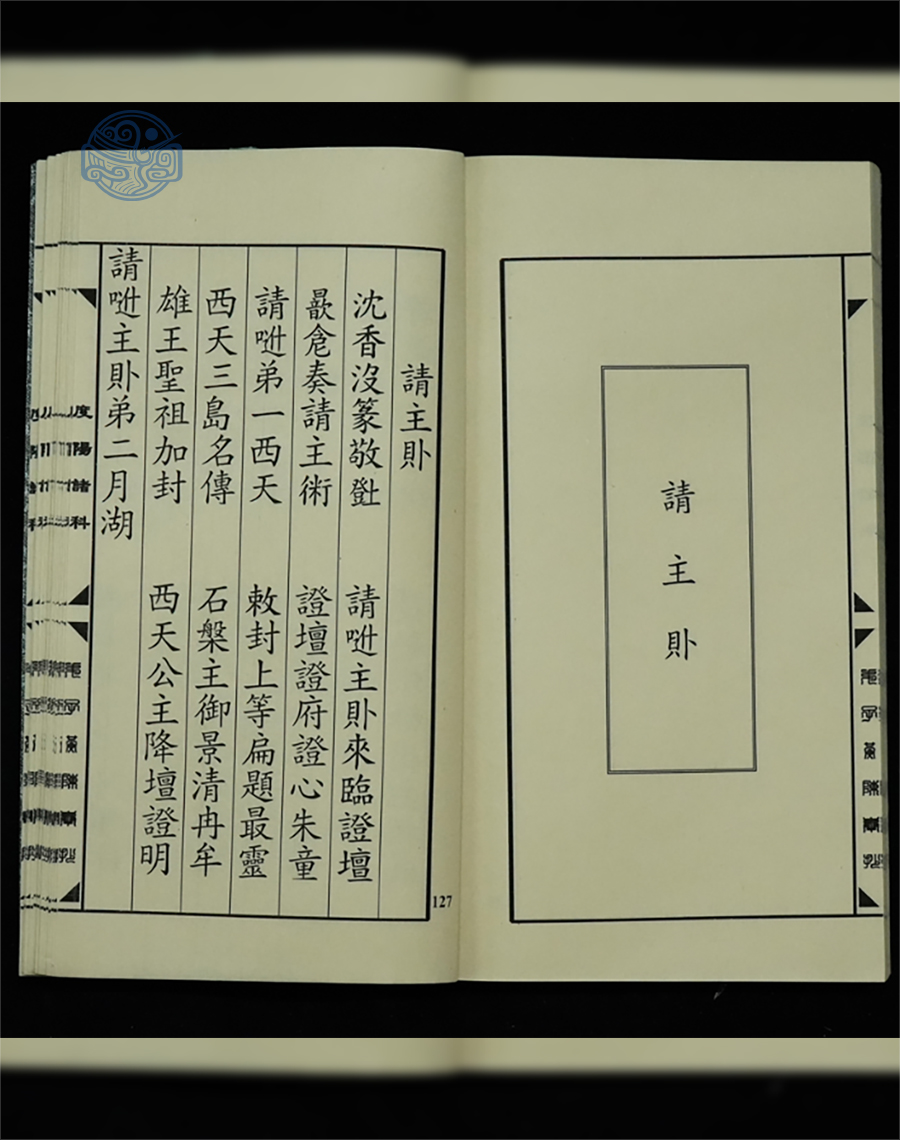 請主𧴤
127
請主𧴤
沈香沒篆敬𤼸 請主𧴤來臨證壇
奏請主術 證壇證府證心朱童
請弟一西天 敕封上等扁題最靈
西天三島名傳 石槃主御景清冉牟
雄王聖祖加封 西天公主降壇證明
請主𧴤弟二月湖
度陽諸科